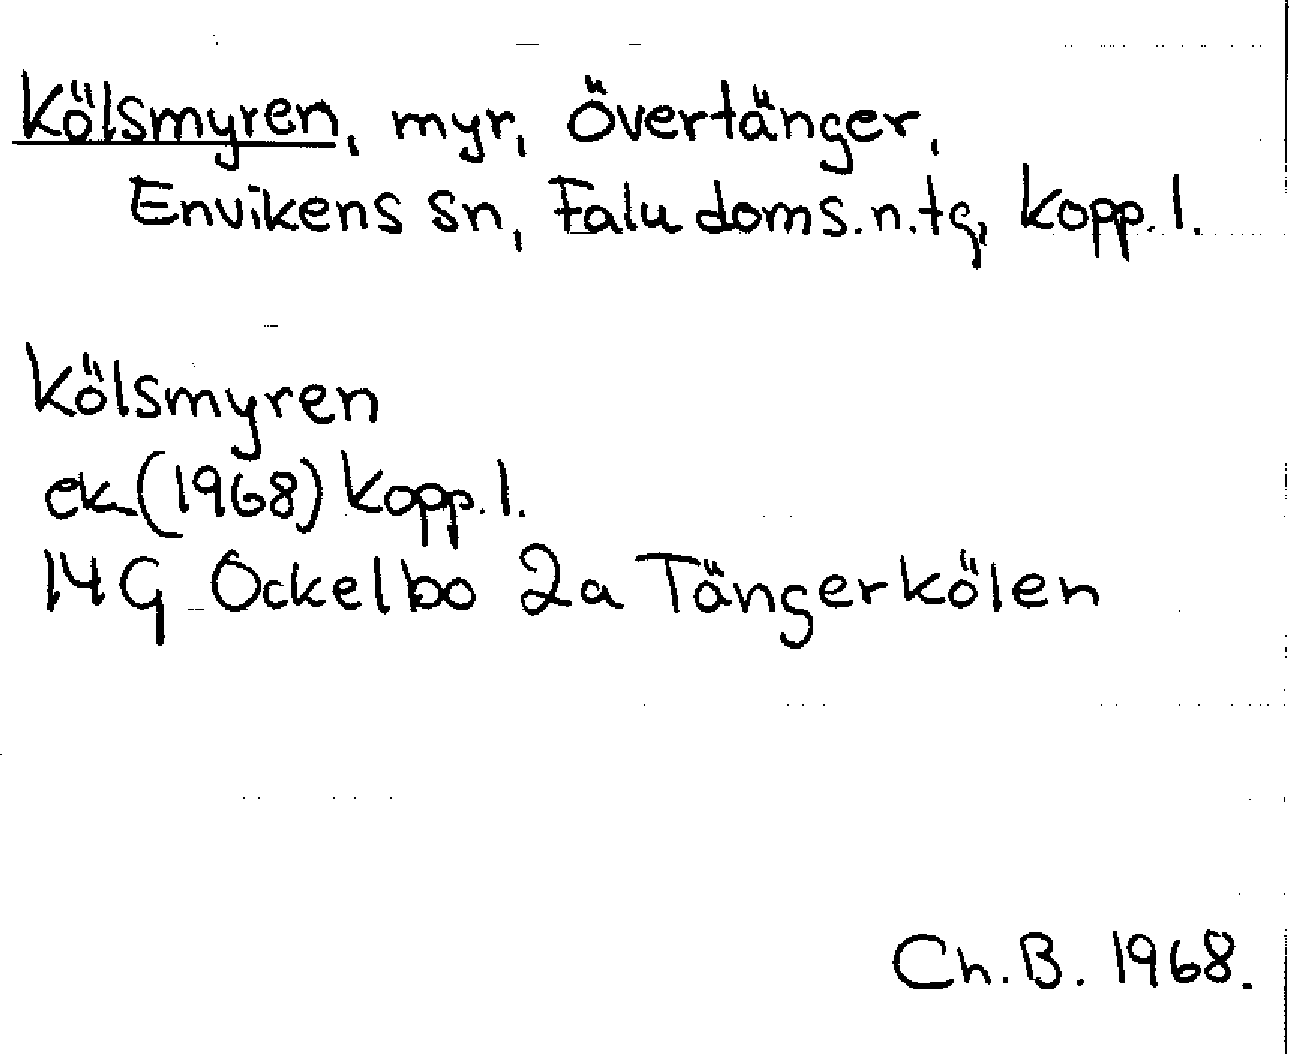 Kölsmyren, myr, Övertänger,
Envikens sn, Falu doms.n.tg, Kopp. l.
Kölsmyren
ek (1968) Kopp. l.
14G Ockelbo 2a Tängerkölen
Ch. B. 1968.